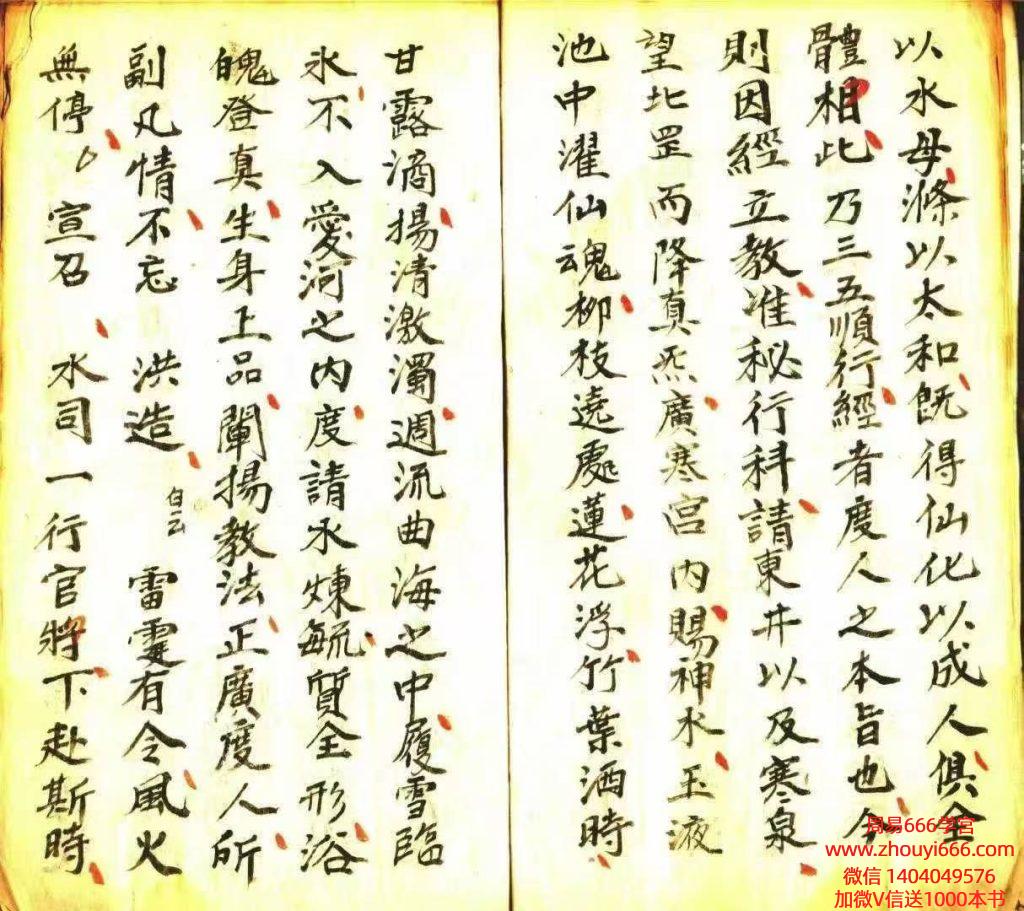 以水母滌以太和旣得仙化以成人俱全
體相此乃三五順行經者度人之本旨也今
則因經立教准秘行科請東井以及寒泉
望北罡而降真炁廣寒宮内賜神水玉液
池中濯仙魂柳枝遶處蓮花浮竹葉洒時
甘露滴揚清激濁週流曲海之中履雪臨
氷不入愛河之内度請水煉毓質全形浴
魄登真生身上品闡揚教法正廣度人所
副凡情不忘 洪造 白云 雷霆有令風火
無停 宣召 水司一行官將下赴斯時
周易666学宫
www.zhouyi666.com
微信 1404049576
加微V信送1000本书